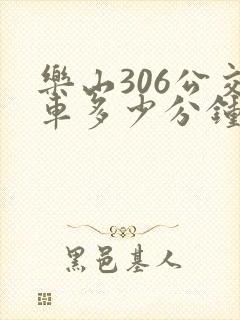 樂山306公交
車多少分鐘
黑邑基人